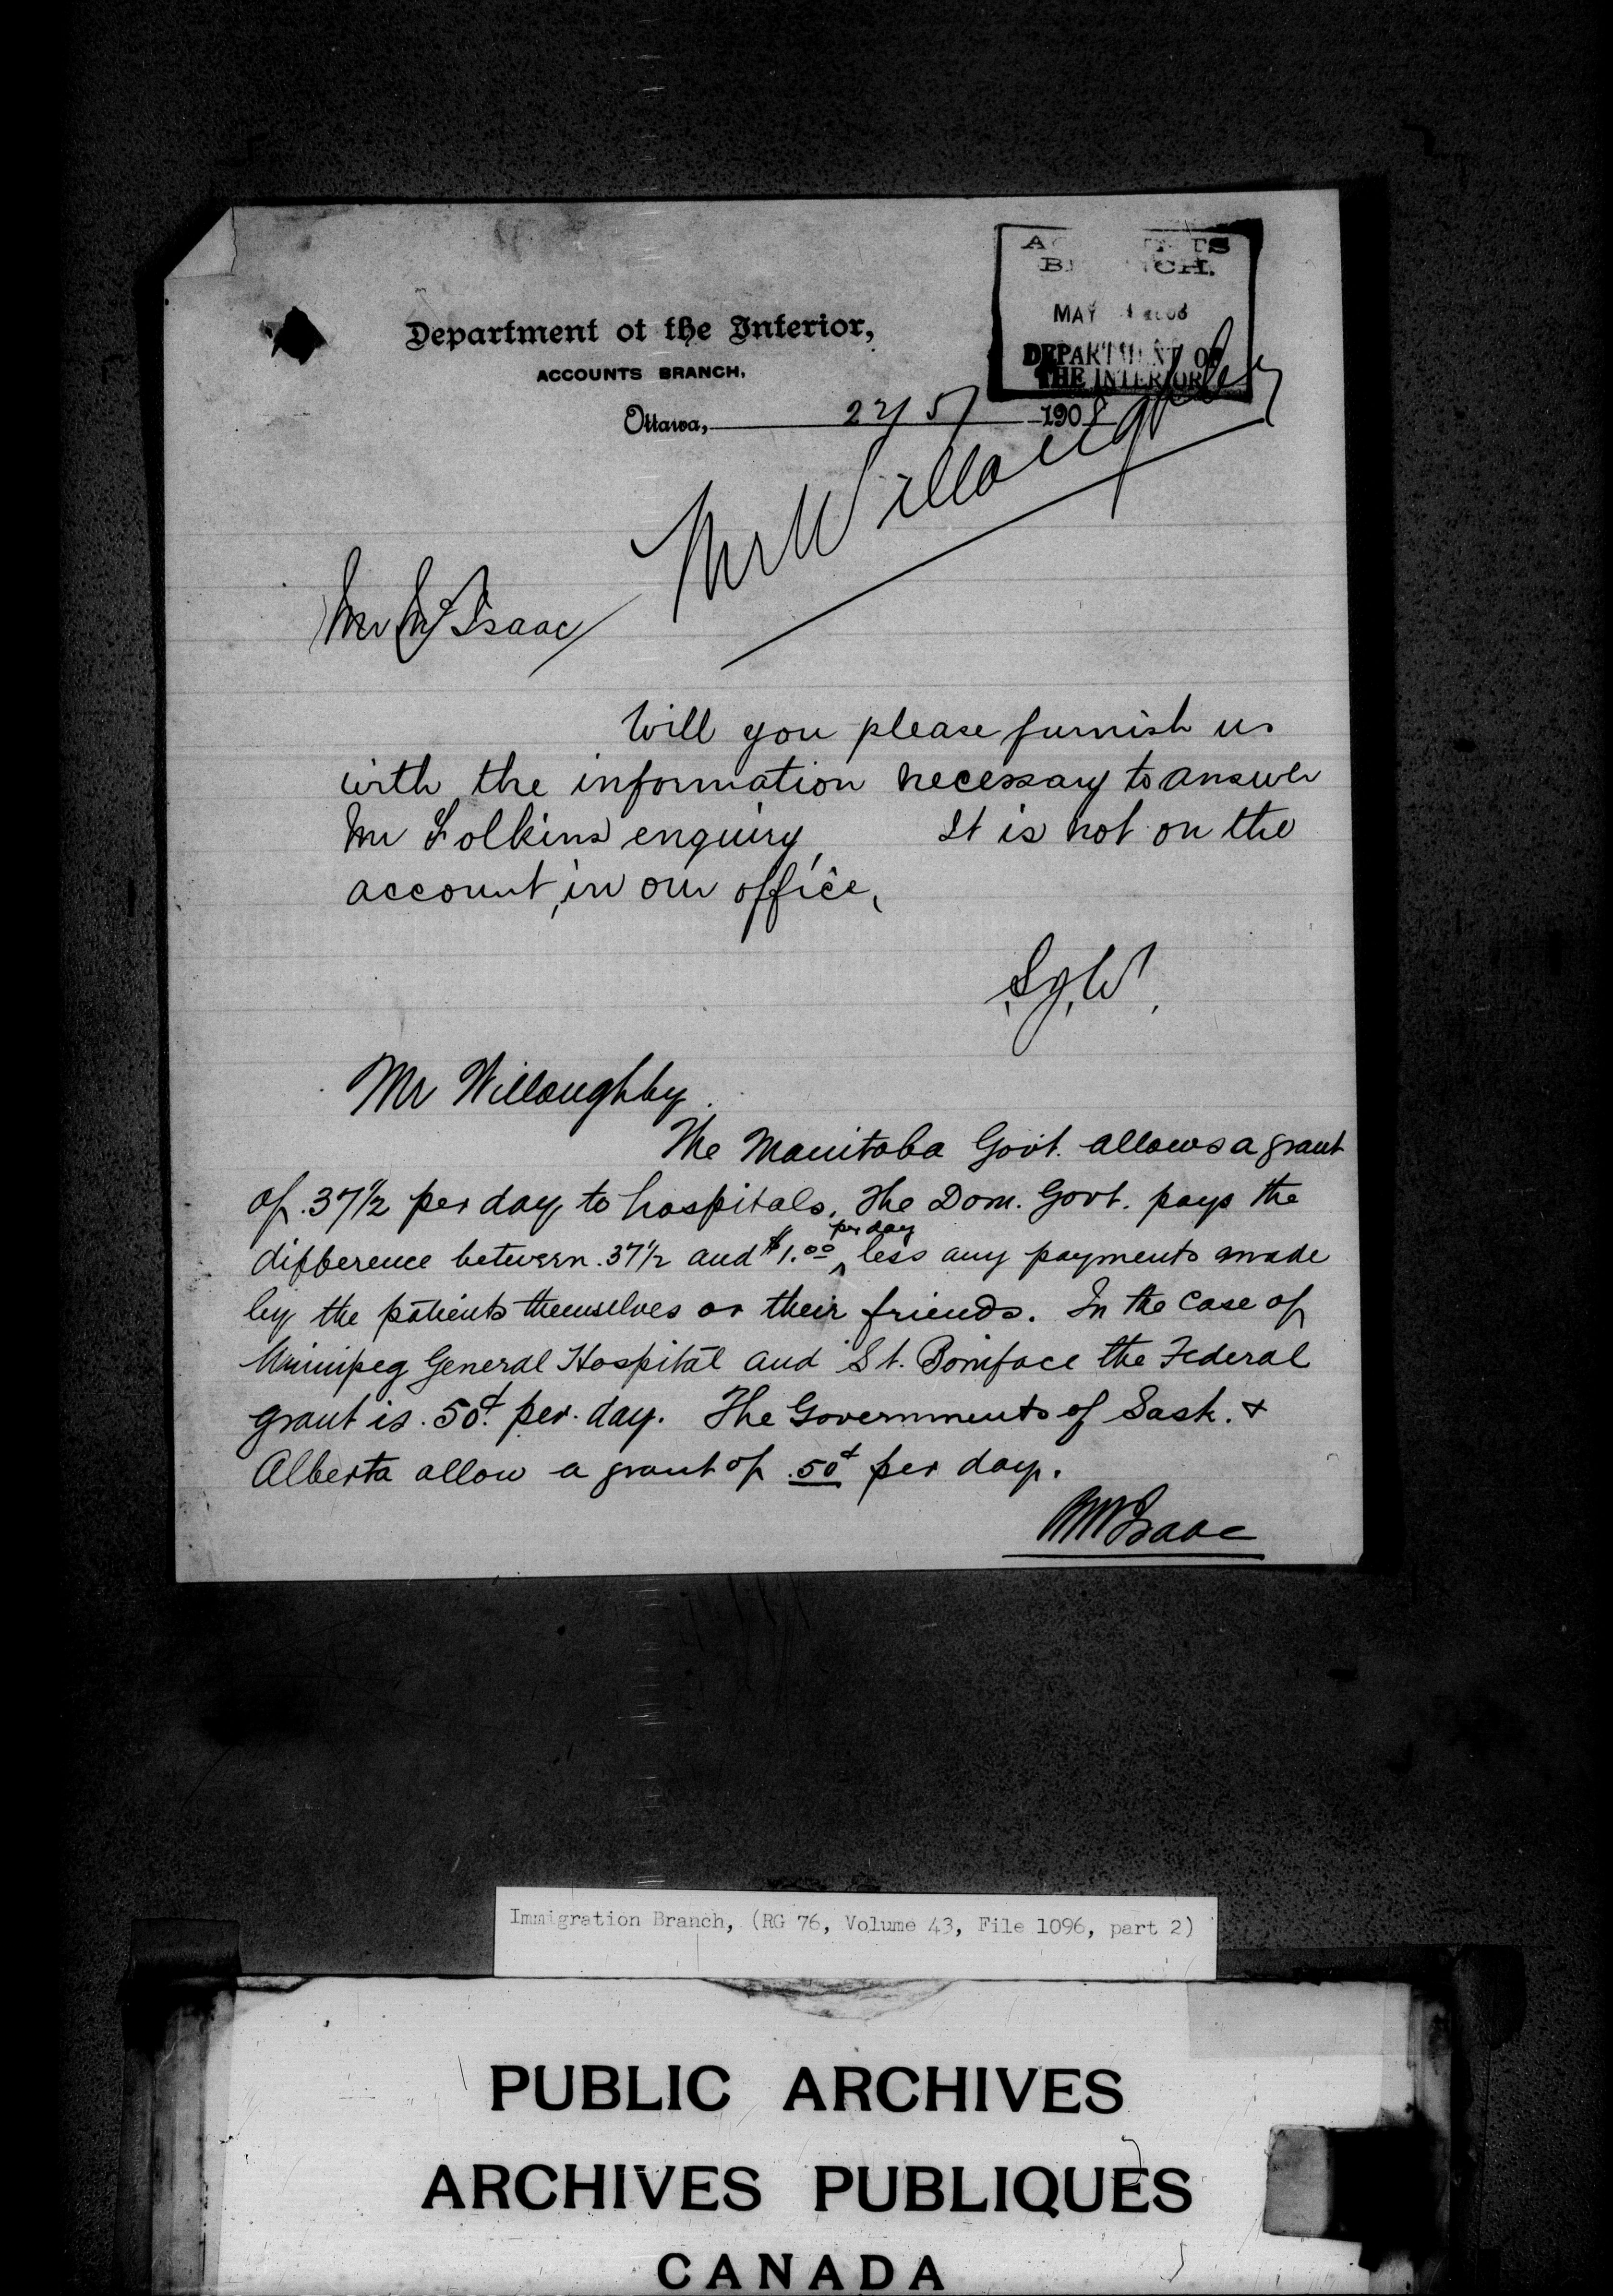 ACCOUNTS
BRANCH.
MAY 1908
DEPARTMENT OF
THE INTERIOR
Department of the Interior,
ACCOUNTS BRANCH.
Ottawa, 22/5/ 1908
Mr Willoughby
Mr McIsaac
Will you please furnish us
with the information necessary to answer
Mr Folkins enquiry, It is not on the
account, in our office,
S.J.W.
Mr Willoughby.
The Manitoba Govt. allows a grant
of .37½ per day to hospitals. The Dom. Govt. pays the
per day
difference between .37½ and $1.00 ^ less any payments made
by the patients themselves or their friends. In the case of
Winnipeg General Hospital and St. Boniface the Federal
grant is .50¢ per day. The Governments of Sask. &
Alberta allow a grant of .50¢ per day.
McIsaac
Immigration Branch, (RG 76, Volume 43, File 1096, part 2)
PUBLIC ARCHIVES
ARCHIVES PUBLIQUES
CANADA